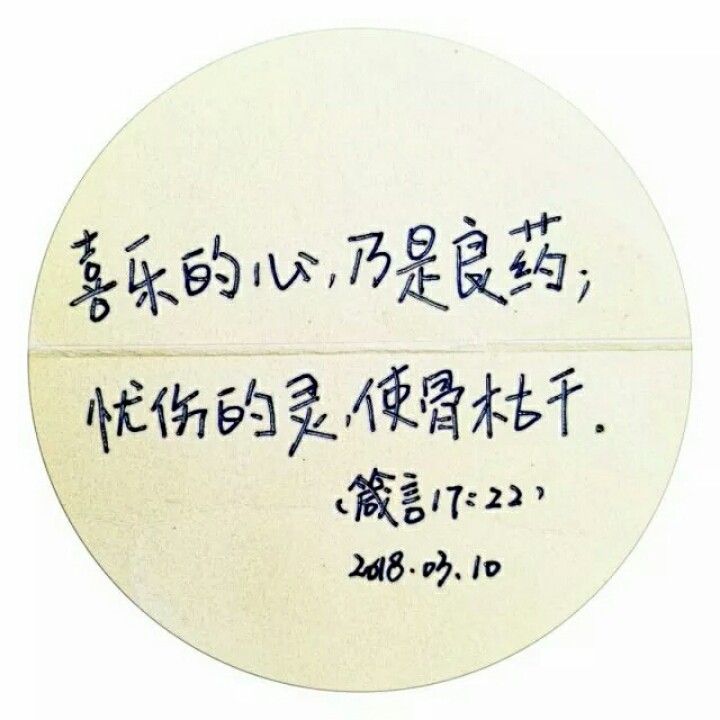 喜乐的心,乃是良药;
忧伤的灵,使骨枯干.
(箴言17:22)
2018.03.10